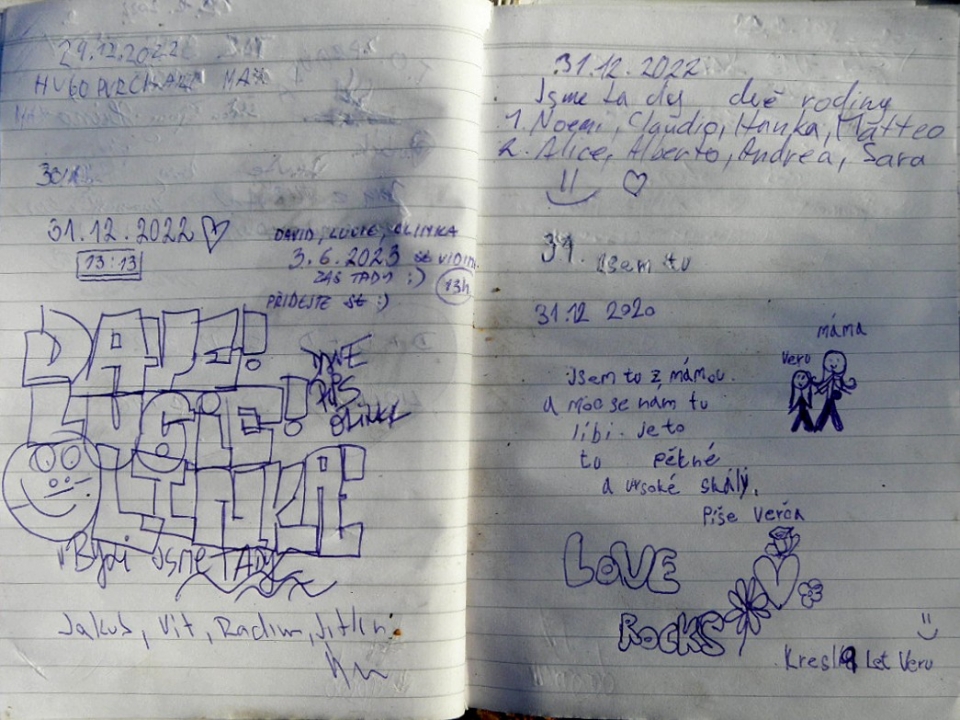 29.12.2022
HUGO PURCHART MAX
30.1
31.12.2022
13:13
DAVID, LUCIE, OLINKA
3.6.2023 SE VIDÍM.
ZAS TADY :)
13h
PŘIDEJTE SE :)
DAVE!
LUCIE!
OLINKA!
Byli jsme TADY
Jakub, Vít, Radim, Jitka
31.12.2022
Jsme ta dy dvě rodiny
1. Noemi, Claudio, Hanka, Matteo
2. Alice, Alberto, Andrea, Sara
31. jsem tu
31.12 2020
máma
Veru
Jsem tu z mámou.
a moc se nám tu
líbí. Je to
tu pěkné
a vysoké skály.
Píše Verča
LOVE
ROCKS
Kreslila 9 Let Veru